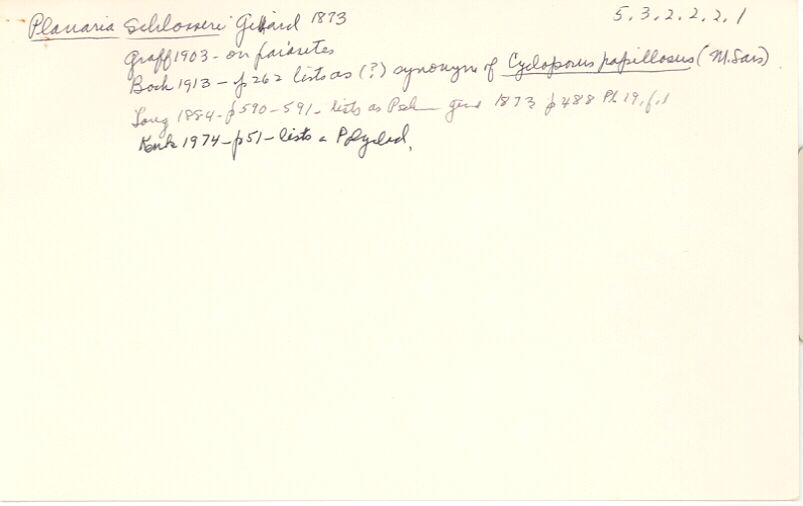 Planaria Schlosseri Giard 1873 5.3.2.2.2.1
Graff 1903 - on parasites
Bock 1913 - p262 lists as (?) synonym of Cycloporus papillosus (M. Sars)
Lang 1884 - p590-591 - lists as 1873 p488 Pl 19, f.1
Kenk 1974 - p51 - lists a Polyclad.